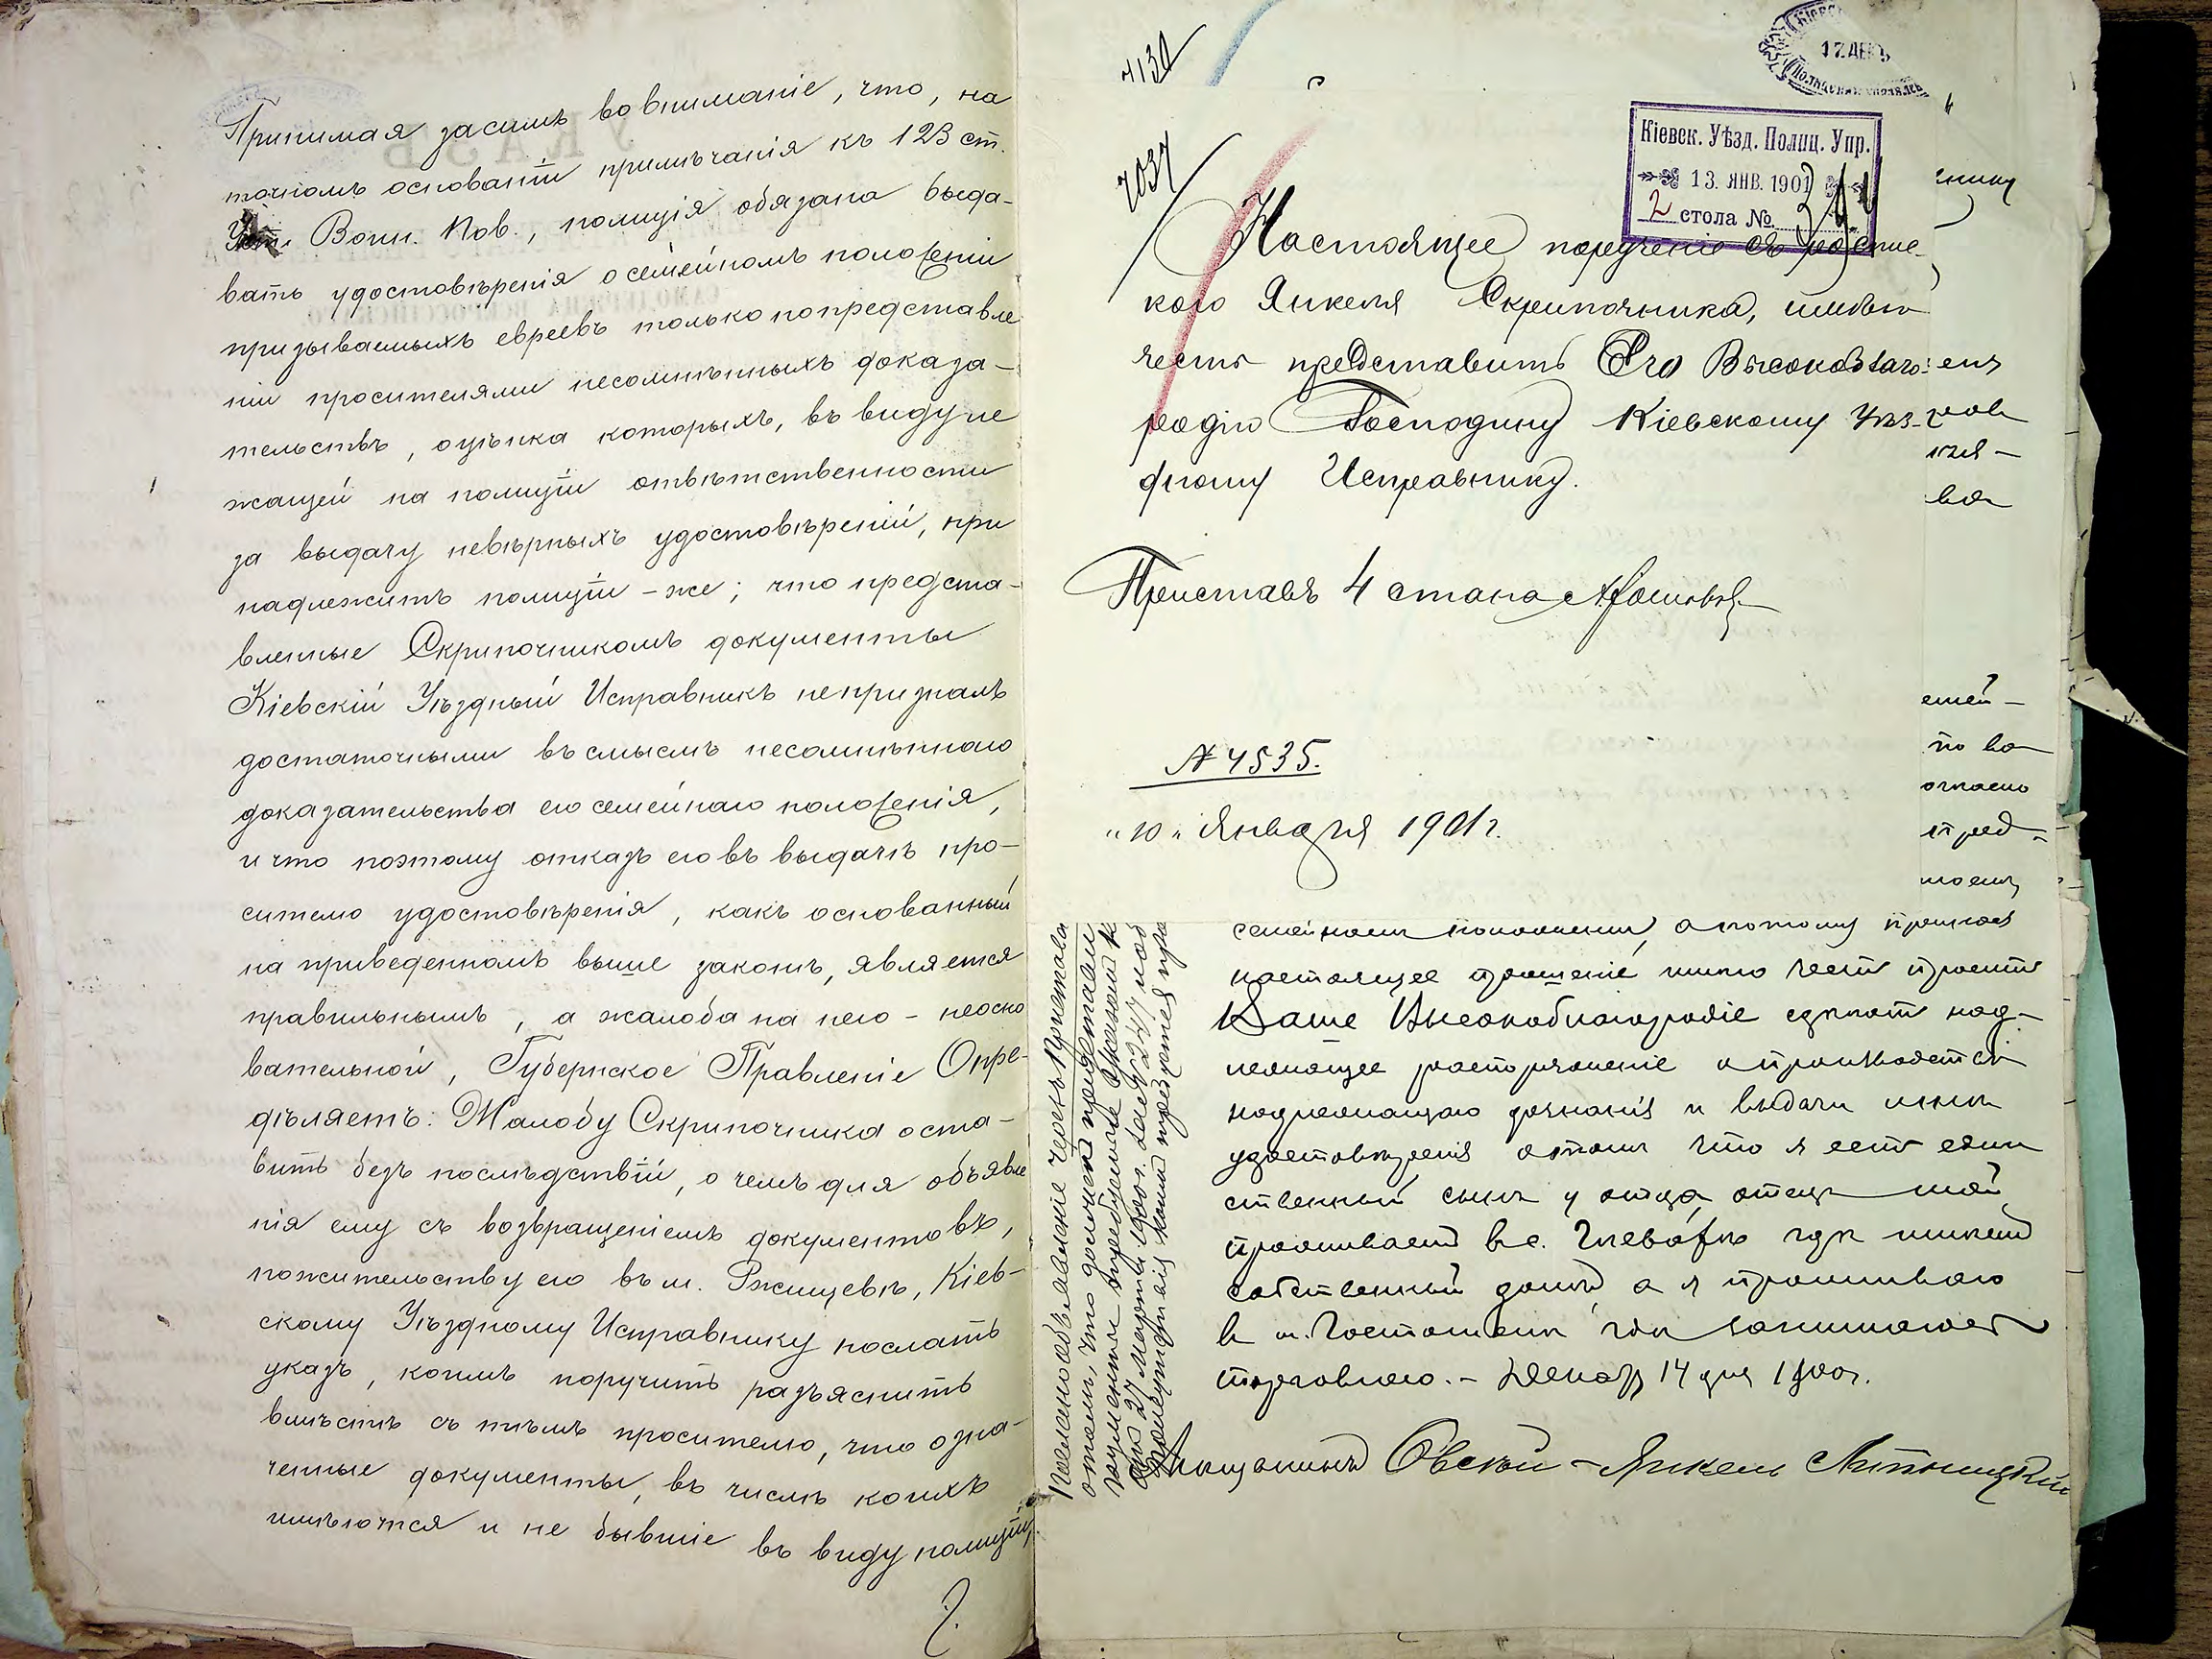 Принимая засимъ во вниманіе, что, на
точномъ основаніи примѣчанія къ 123 ст.
Уст. Воин. Пов., полиція обязана выда-
вать удостовѣренія о семейномъ положеніи
призываемыхъ евреевъ только по представле
ніи просителями несомнѣнныхъ доказа-
тельствъ, оцѣнка которыхъ, въ виду ле
жащей на полиціи отвѣтственности
за выдачу невѣрныхъ удостовѣреній, при
надлежитъ полиціи-же; что предста-
вленные Скрипочникомъ документы
Кіевскій Уѣздный Исправникъ не призналъ
достаточными въ смыслѣ несомнѣннаго
доказательства его семейнаго положенія,
и что поэтому отказъ его въ выдачѣ про-
сителю удостовѣренія, какъ основанный
на приведенномъ выше законѣ, является
правильнымъ, а жалоба на него - неосно
вательной, Губернское Правленіе Опре-
дѣляетъ: Жалобу Скрипочника оста-
вить безъ послѣдствій, о чемъ для объявле
нія ему съ возвращеніемъ документовъ,
по жительству его въ м. Ржищевѣ, Кіев-
скому Уѣздному Исправнику послать
указъ, коимъ поручить разъяснить
вмѣстѣ съ тѣмъ просителю, что озна-
ченные документы, въ числѣ коихъ
имѣются и не бывшіе въ виду полиціи,
7130
7037
17 ДЕК
Кіевск. Уѣзд. Полиц. Упр.
13. ЯНВ. 1901
2 стола №
Настоящее порученіе съ роспис-
кого Янкеля Скрипочника, имѣю
честь представить Его Высокоблаго-
родію Господину Кіевскому Уѣз-
дному Исправнику.
Приставъ 4 стана
№ 4535.
"10" Января 1901 г.
нику
емъ
ков
ва
емей-
по во
огласно
пред-
моему
семейномъ положеніи, а потому прилагая
настоящее прошеніе имѣю честь просить
Ваше Высокоблагородіе сдѣлать над-
лежащее распоряженіе о производствѣ
надлежащаго дознанія и выдачи мнѣ
удостовѣренія о томъ что я есть един
ственный сынъ у отца, отецъ мой
проживаетъ в с. Глевахѣ гдѣ имѣетъ
собственный домъ, а я проживаю
в м. Гостомелѣ гдѣ занимаюсь
торговлею. - Декабр 14 дня 1900 г.
Мѣщанинъ Овсей-Янкель Литницкій
Послано объявленіе черезъ Пристава
о томъ, что долженъ представить
документы
27 Марта 1900 г. за № 2447